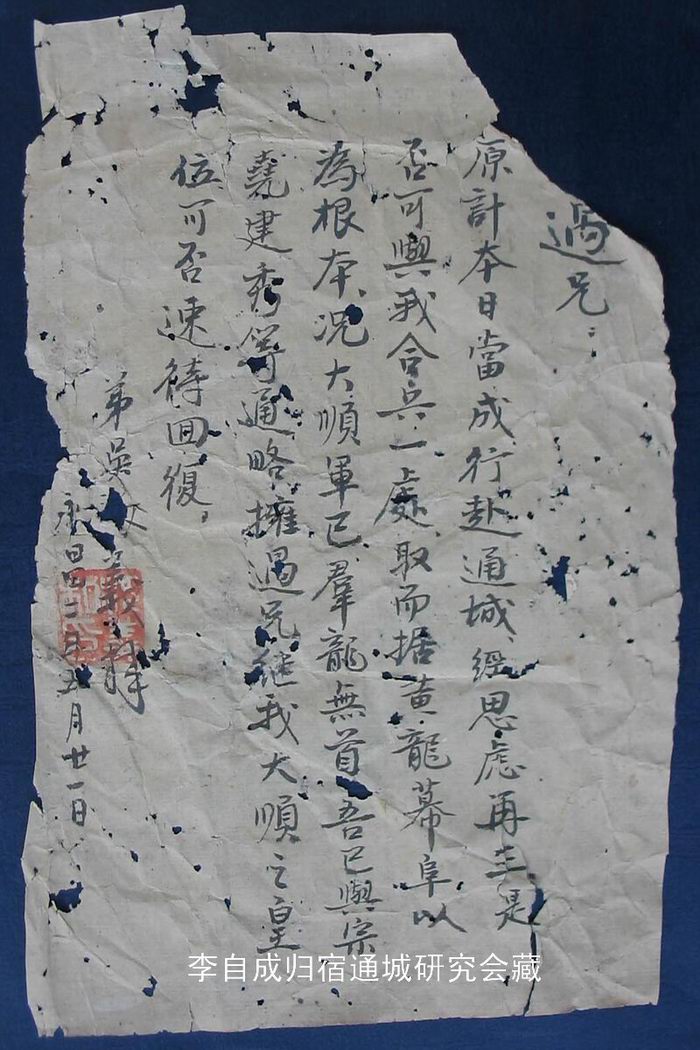 過兄：
原計本日當成行赴通城、經思慮再三、是
否可與我合兵一處、取而据黃龍幕阜以
為根本、况大順軍已羣龍無首、吾已與宗
堯建秀等通略擁過兄继我大順之皇
位可否速待回復。
弟吳汝義拜
永昌二年五月廿一日
李自成归宿通城研究会藏